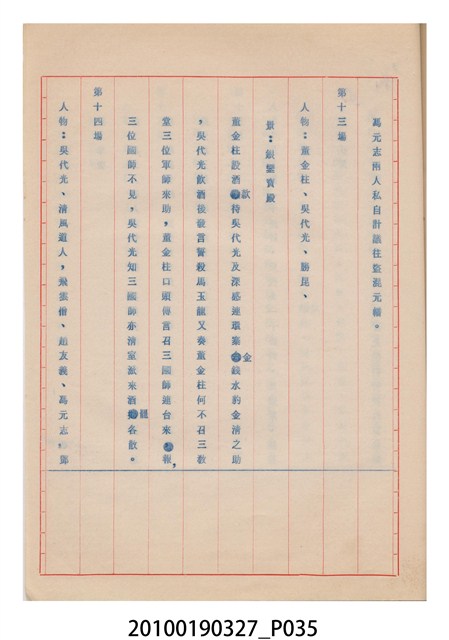 馬元志兩人私自計議往盜混元幡。
第十三場
人物：董金柱、吳代光、勝昆、
景：銀鑾寶殿
董金柱設酒款待吳代光及深感連環寨金錢水豹金清之助
，吳代光飲酒後發言誓殺馬玉龍又奏董金柱何不召三教
堂三位軍師來助，董金柱口頭傳言召三國師連台來，報，
三位國師不見，吳代光知三國師亦清室派來酒各飲。
第十四場
人物：吳代光、清風道人，飛雲僧、趙友義、馬元志，鄧
20100190327_P035